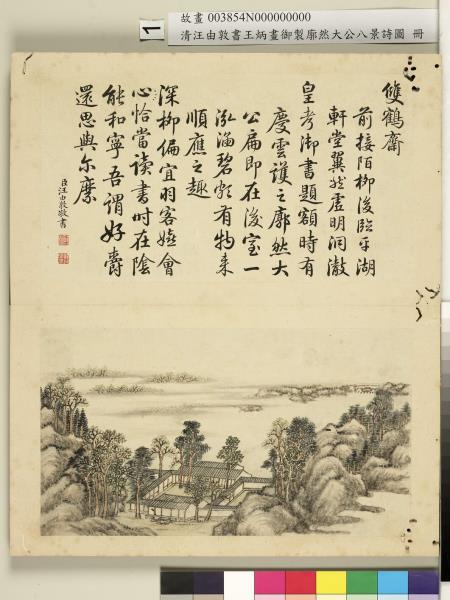 故畫 003854N000000000
清汪由敦書王炳畫御製廓然大公八景詩圖 冊
1
雙鶴齋
前接陌柳後臨平湖
軒堂翼然虛明洞澈
皇考御書題額時有
慶雲護之廓然大
公扁即在後室一
泓涵碧頗有物来
順應之趣
深柳偏宜羽客嬉會
心恰當讀書時在陰
能和寧吾謂好爵
還思與尔縻
臣汪由敦敬書